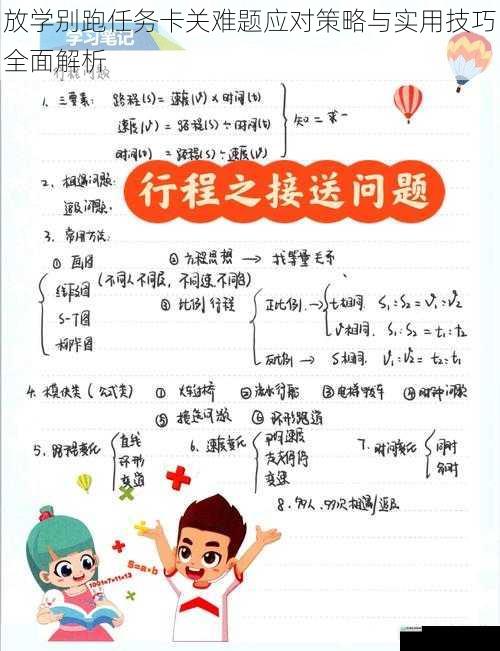 放学别跑任务卡关难题应对策略与实用技巧
全面解析
学习笔记
行程问题
1. 三要素: 路程(S) = 速度(V) × 时间(t)
速度(V) = 路程(S) ÷ 时间(t)
时间(t) = 路程(S) ÷ 速度(V)
知二求一
2. 相遇问题:
追及问题:
行程之接送问题
3. 常用方法:
① 画图
线段图 (不同人不同层, 不同速不同色)
S-T图
柳卡图
② 方程思想 → 找等量关系
③ 比例行程
正比例 → t相同. S₁:S₂ = V₁:V₂
V相同. S₁:S₂ = t₁:t₂
反比例 → S相同. V₁:V₂ = t₂:t₁
4. 模块类 (公式类) ① 火车过桥 ② 流水行船 ③ 电梯 ④ 时钟问题
⑤ 接送问题 ⑥ 环形跑道
5. 路程变化
直线
环形
变道
6. 速度变化
走走停停
变速
7. 时间变化
同时
8. 多人、多次相遇/追及
S=a×b
1001=7×11×13